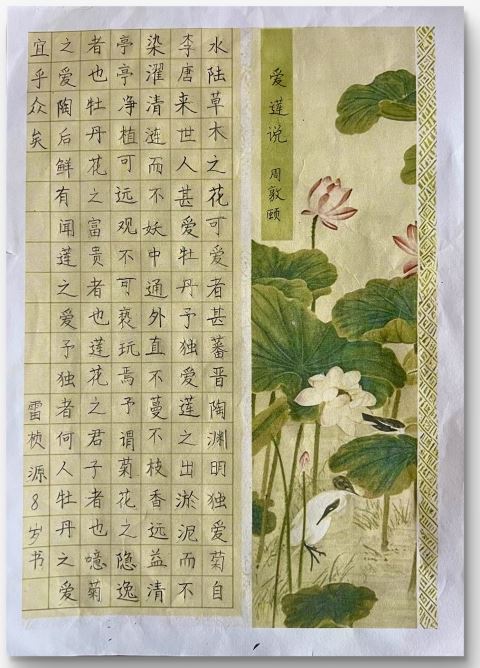 爱莲说 周敦颐
水陆草木之花可爱者甚蕃晋陶渊明独爱菊自
李唐来世人甚爱牡丹予独爱莲之出淤泥而不
染濯清涟而不妖中通外直不蔓不枝香远益清
亭亭净植可远观不可亵玩焉予谓菊花之隐逸
者也牡丹花之富贵者也莲花之君子者也噫菊
之爱陶后鲜有闻莲之爱予独者何人牡丹之爱
宜乎众矣 雷桢源8岁书